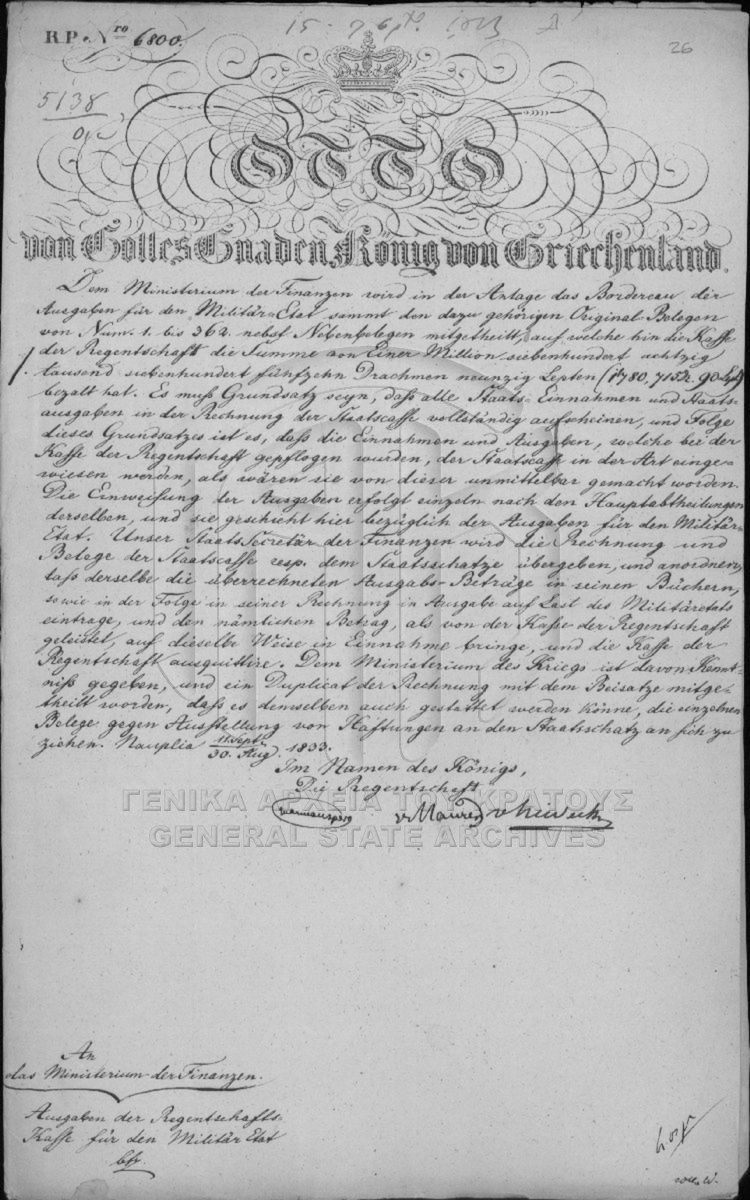 R.P. Nro 6800.
26
5138
OTTO
von Gottes Gnaden König von Griechenland.
Dem Ministerium der Finanzen wird in der Anlage das Bordereau der
Ausgaben für den Militär-Etat sammt den dazu gehörigen Original-Belegen
von Num. 1. bis 362. nebst Nebenbelegen mitgetheilt, auf welche hin die Kasse
der Regentschaft die Summe von Einer Million siebenhundert achtzig
tausend siebenhundert fünfzehn Drachmen neunzig Lepten (1'780,715 Dr. 90 Lept)
bezalt hat. Es muß Grundsatz seyn, daß alle Staats-Einnahmen und Staats-
ausgaben in der Rechnung der Staatscasse vollständig aufscheinen, und Folge
dieses Grundsatzes ist es, daß die Einnahmen und Ausgaben, welche bei der
Kasse der Regentschaft gepflogen wurden, der Staatscasse in der Art einge-
wiesen werden, als wären sie von dieser unmittelbar gemacht worden.
Die Einweisung der Ausgaben erfolgt einzeln nach den Hauptabtheilungen
derselben, und sie geschieht hier bezüglich der Ausgaben für den Militär-
Etat. Unser Staats Secretär der Finanzen wird die Rechnung und
Belege der Staatscasse resp. dem Staatsschatze übergeben, und anordnen,
daß derselbe die überrechneten Ausgabs-Beträge in seinen Büchern,
sowie in der Folge in seiner Rechnung in Ausgabe auf Last des Militäretats
eintrage, und den nämlichen Betrag, als von der Kasse der Regentschaft
geleistet, auf dieselbe Weise in Einnahme bringe, und die Kasse der
Regentschaft ausquittire. Dem Ministerium des Kriegs ist davon Kennt-
niß gegeben, und ein Duplicat der Rechnung mit dem Beisatze mitge-
theilt worden, daß es demselben auch gestattet werden könne, die einzelnen
Belege gegen Ausstellung von Haftungen an den Staatsschatz an sich zu
ziehen. Nauplia 11. Sept. / 30. Aug. 1833.
Im Namen des Königs,
Die Regentschaft
ΓΕΝΙΚΑ ΑΡΧΕΙΑ ΤΟΥ ΚΡΑΤΟΥΣ
v. Maurer v. Heideck
GENERAL STATE ARCHIVES
An
das Ministerium der Finanzen.
Ausgaben der Regentschafts-
Kasse für den Militär Etat
btr.